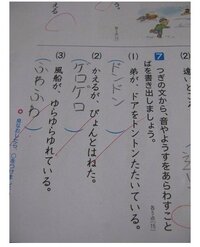 7 つぎの文から、音やようすをあらわすこと
ばを書き出しましょう。
(1) 弟が、ドアをトントンたたいている。
(ドンドン)
(2) かえるが、ぴょんとはねた。
(ゲロゲロ)
(3) 風船が、ゆらゆらゆれている。
(ふわふわ)